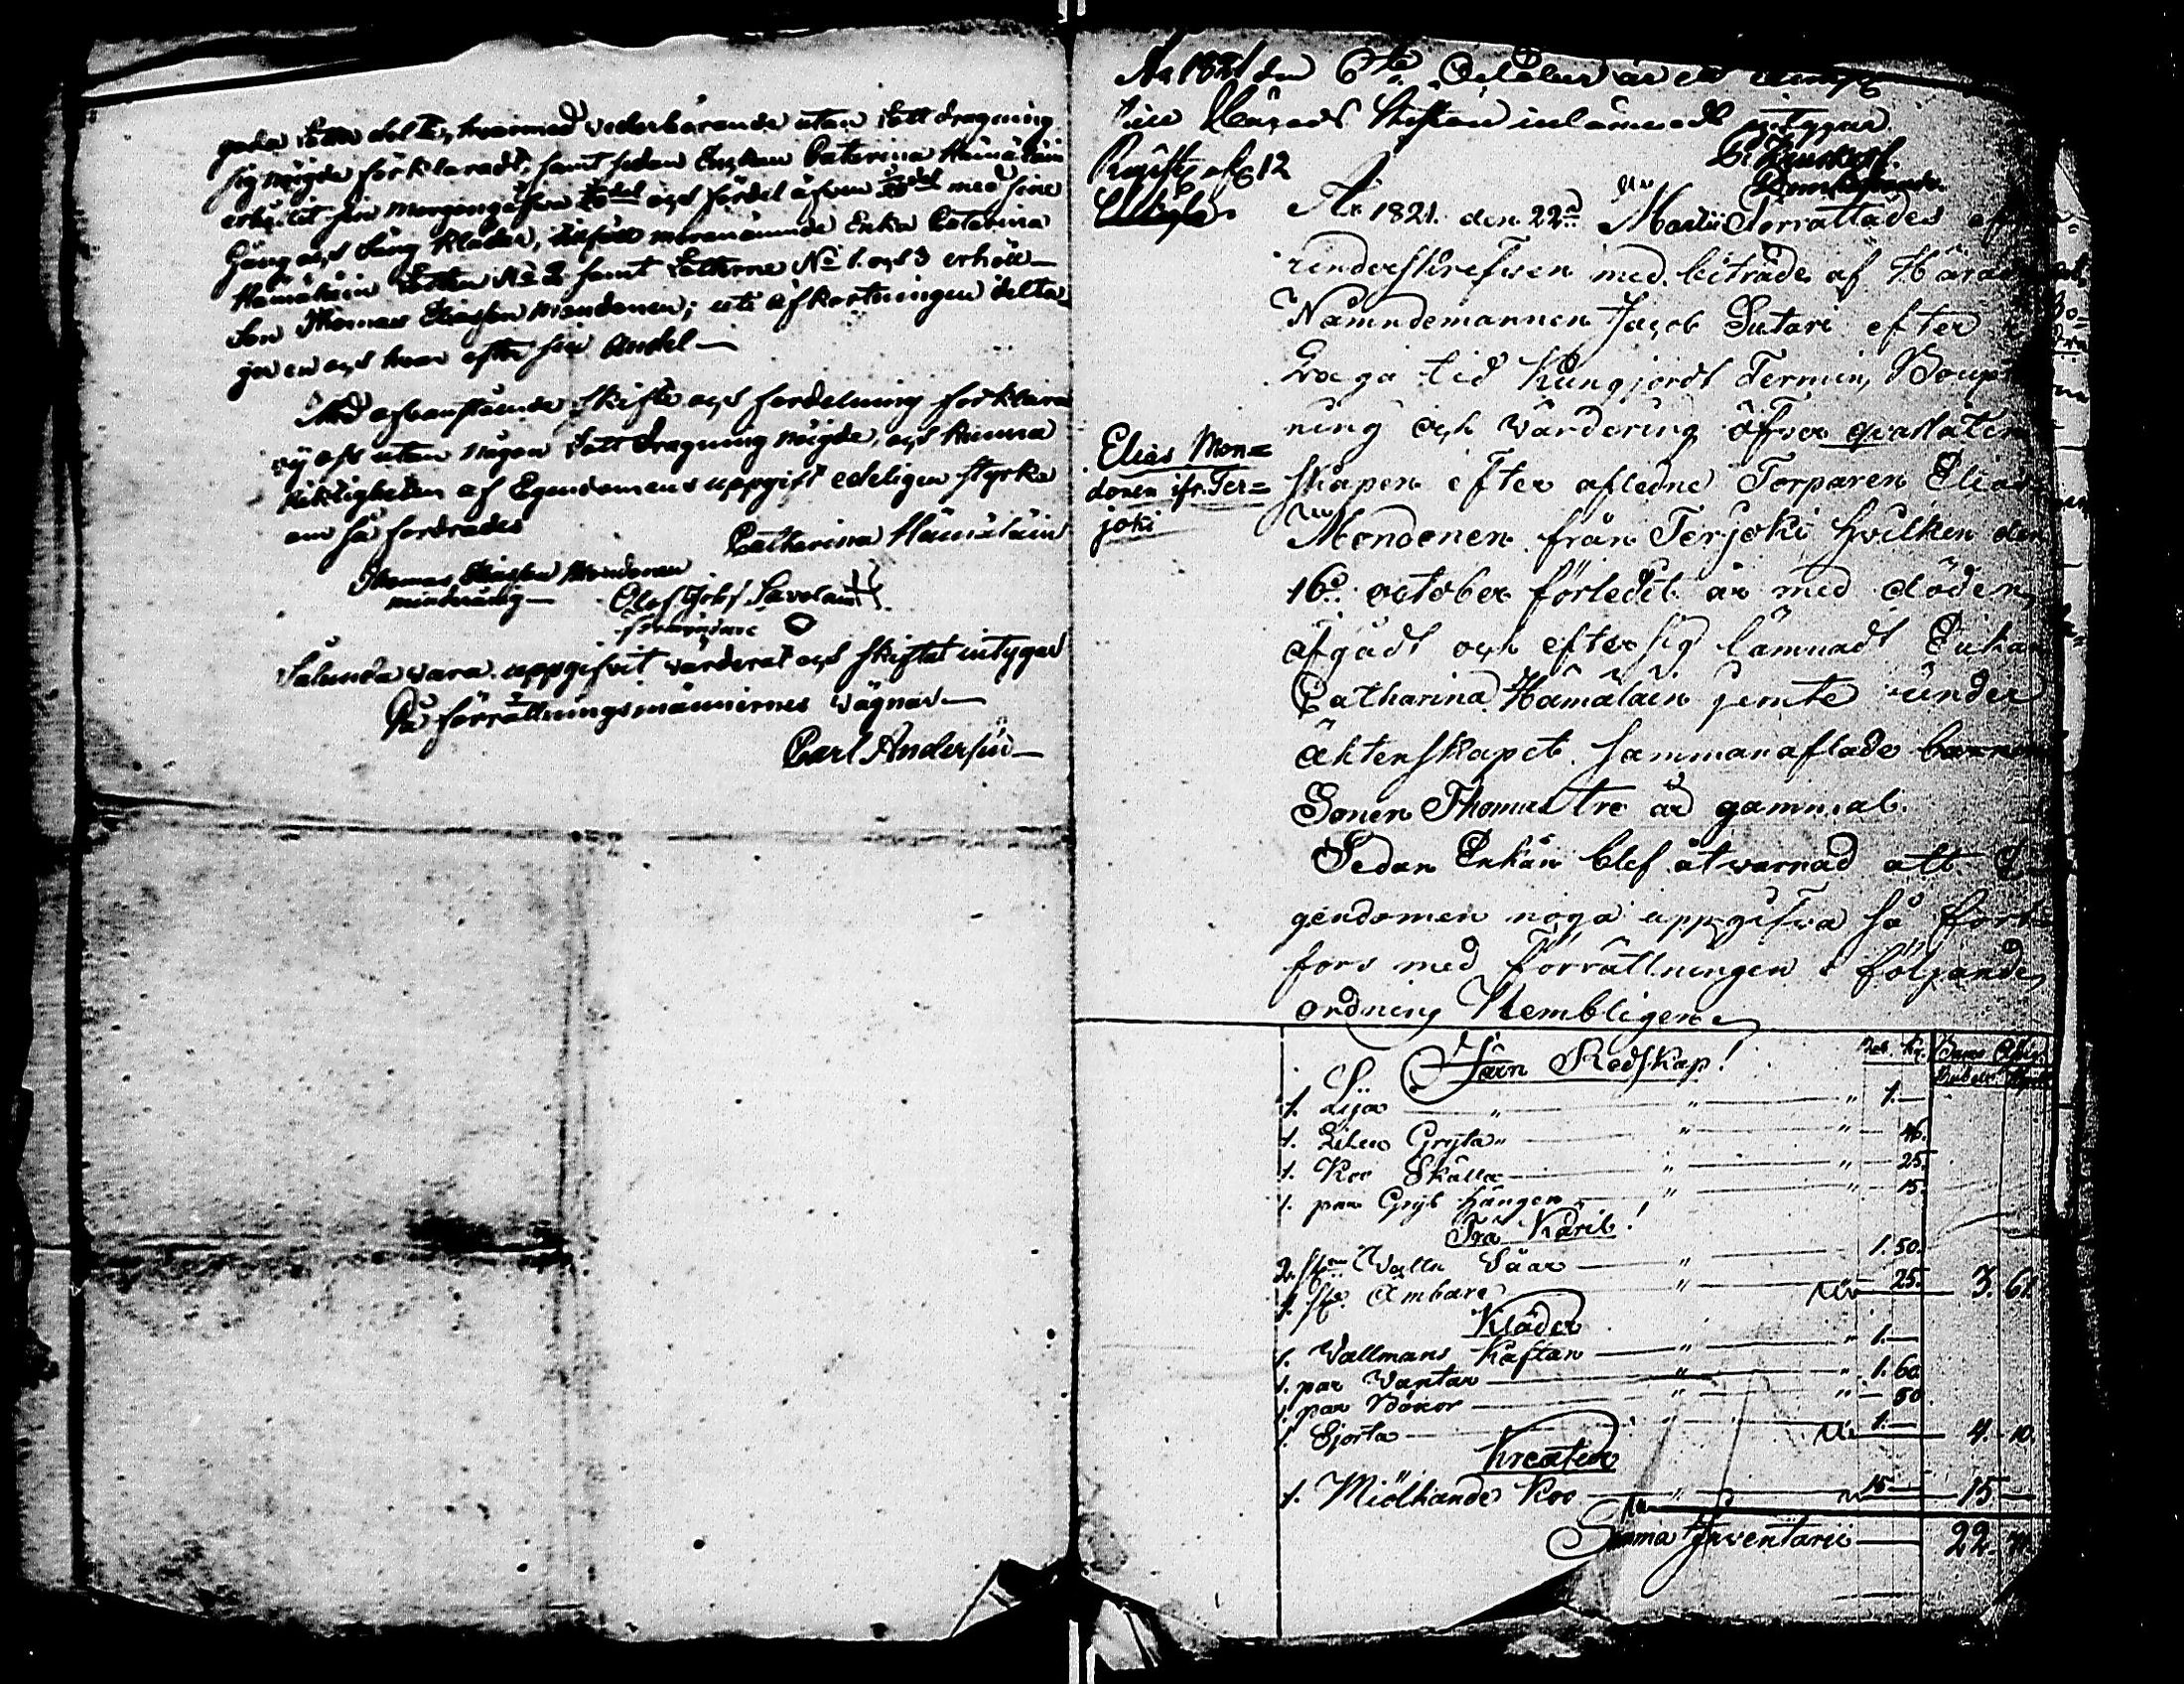 goda Lotter delte, hwarmed wederbörande utan Lottdragning
sig nögde förklarade, samt sedan Enkan Caterina Hämäläin
erhållit sin Morgongåfwa och fördel äfwen med sine
Gång och Säng Kläder, tillföll merenämnde Enka Catarina
Hämäläin Lotten No 2 samt Lotterne No 1. och 3 erhöll
Son Thomas Eliasson Mondonen; uti afkortningen delta
ger en och hwar efter sin Andel
Med ofvanstående skifte och fördelning förklara
wij oss utan någon Lottdragning nögde, och kunna
riktigheten af Egendomens uppgift edeligen styrka
om så fordrades
Catharina Hämäläin
Thomas Eliasson Mondonen
minderårig
Olof Savolain
förmyndare
Sålunda wara uppgifvit wärderat och skiftat intygar
På förrättningsmännernes wägnar
Carl Andersin
År 1821 den 6te October är ett
till Härads Rätten inlämnadt intygar
No 12
År 1821. den 22d Martii Förrättades af
underskrefwen med biträde af Härads
Nämndemannen Jacob Sutari efter
Laga tid kungjordt Termin, Boupteck
ning och wärdering öfwer qvarlåten
Elias Mon=
donen ifr. Ter=
joki
skapen efter afledne Torparen Elias
Mondonen från Terjoki hvilken den
16d october förledit år med döden
afgådt och efter sig lämnadt Enkan
Catharina Hämäläin jemte under
äktenskapet sammanaflade barnen
Sonen Thomas tre år gammal.
Sedan Enkan blef åtwarnad att E
gendomen noga uppgifwa så fort
fors med förrättningen i följande
ordning Nembligen
Järn Redskap!
1. Lija " " " 1.—
1. Liten Gryta " " " 46.
1. Koo Skälla " " 25.
1. par Gryt hängen " " 15.
Trä Käril!
2. st Watten Såar " 1. 50.
1. st. Ämbare " 25. 3. 61
Kläder
1. Wallmans Kaftan " " 1.—
1. par Wantar " " 1. 60.
1. par Böxor " " 50
1. Sjorta " 1.— 4. 10.
Kreatur
1. Miölkande Koo " 15.— 15.—
Summa Inventarii 22. 71